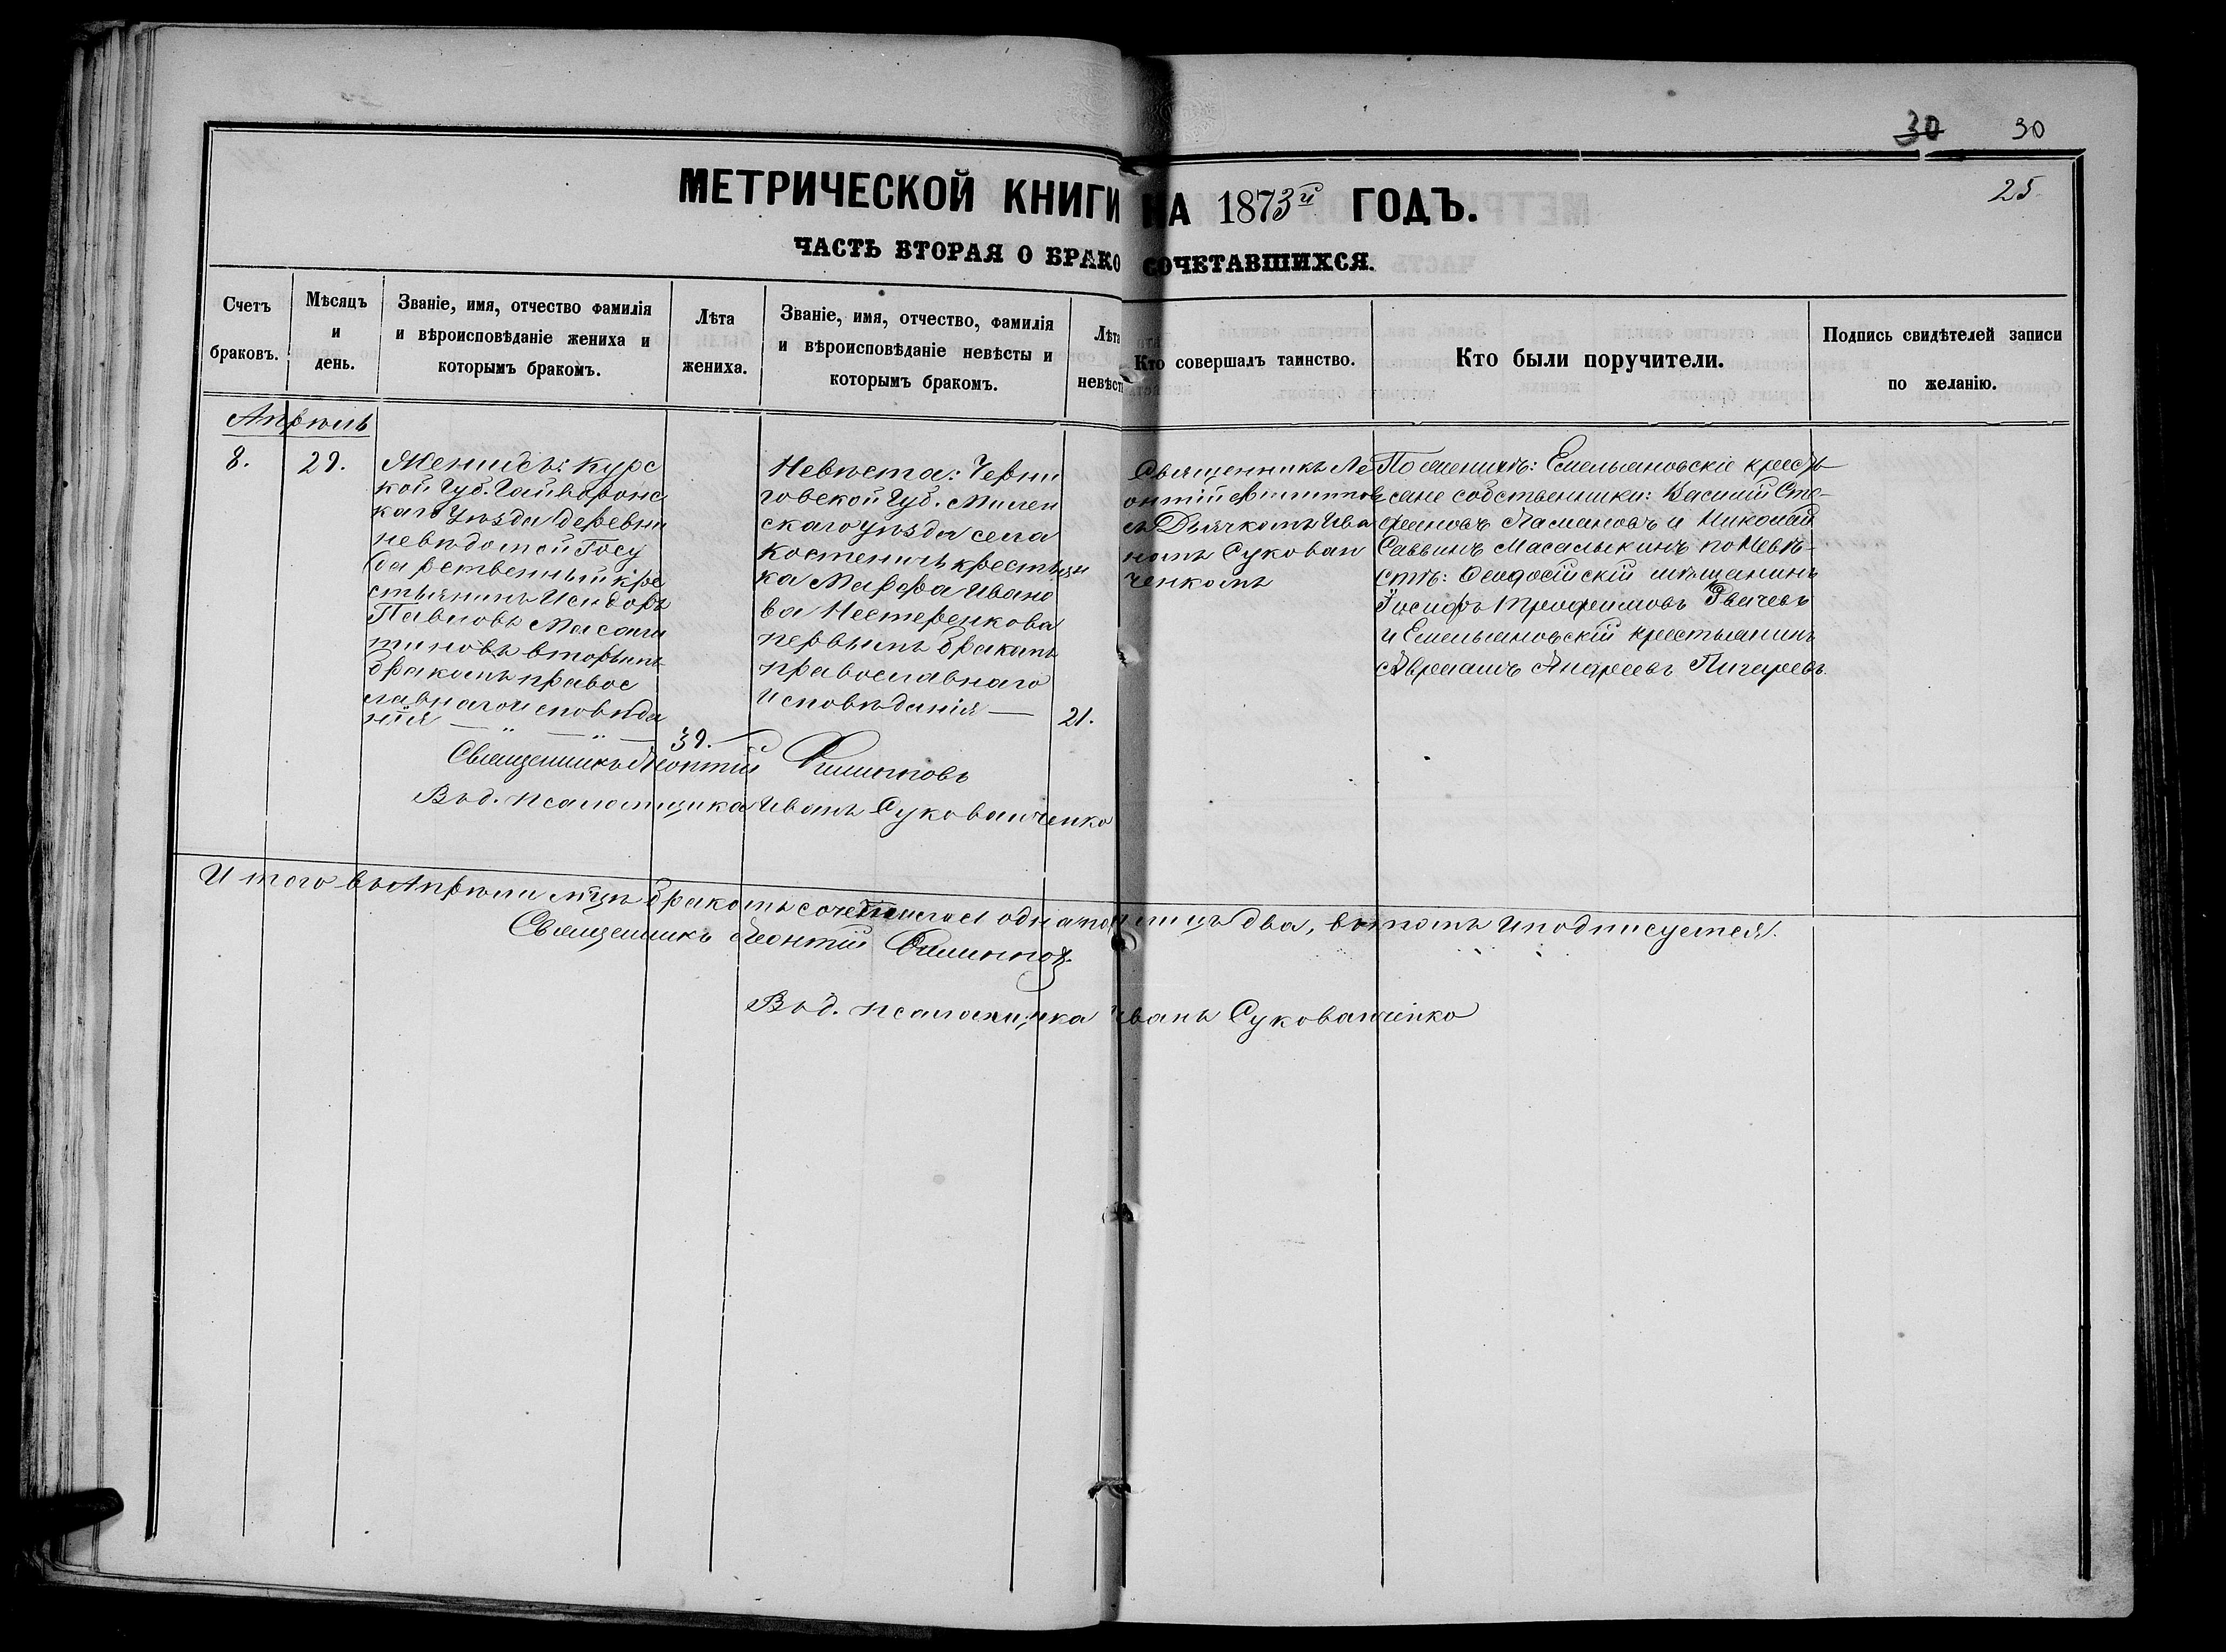 30 30
25
МЕТРИЧЕСКОЙ КНИГИ НА 1873й ГОДЪ.
ЧАСТЬ ВТОРАЯ О БРАКОСОЧЕТАВШИХСЯ.
Счетъ
браковъ.
Мѣсяцъ
и
день.
Званіе, имя, отчество фамилія
и вѣроисповѣданіе жениха и
которымъ бракомъ.
Лѣта
жениха.
Званіе, имя, отчество, фамилія
и вѣроисповѣданіе невѣсты и
которымъ бракомъ.
Лѣта
невѣст
Кто совершалъ таинство.
Кто были поручители.
Подпись свидѣтелей записи
по желанію.
Апрѣль
8.
29.
Женихъ: Курс
кой Губ. Гайворонс
каго Уѣзда деревни
невѣдомой Госу
дарственный кре
стьянинъ Исидоръ
Павловъ
вторымъ
бракомъ правос
лавнаго исповѣда
нія
39.
Невѣста: Черни
говской Губ. Мглин
скаго уѣзда села
Костеничь крестьян
ка Марфа Ивано
ва Нестеренкова
первымъ бракомъ
православнаго
исповѣданія —
21.
Священникъ Ле
онтій Филиппов
съ Дьячкомъ Ива
номъ Сукован
ченкомъ
По женихѣ: Емельяновскіе крестъ
яне собственники: Василій Сте-
фановъ и Николай
Саввинъ Масалыкинъ по Невѣ-
стѣ: Феодосійскій мѣщанинъ
Іосифъ Трофимовъ
и Емельяновскій крестьянинъ
Авраамъ Андреевъ Пигаревъ.
Священникъ Леонтій Филипповъ
В. д. псаломщика Иванъ Сукованченко
Итого въ Апрѣли м-цѣ бракомъ сочеталася одна пара лицъ два, въ томъ и подписуемся.
Священникъ Леонтій Филипповъ
В. д. псаломщика Иванъ Сукованченко